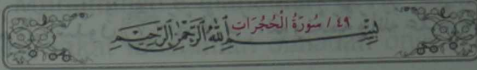 ٤٩ / سُورَةُ الْحُجُرَاتِ
بِسْمِ اللَّهِ الرَّحْمَٰنِ الرَّحِيمِ